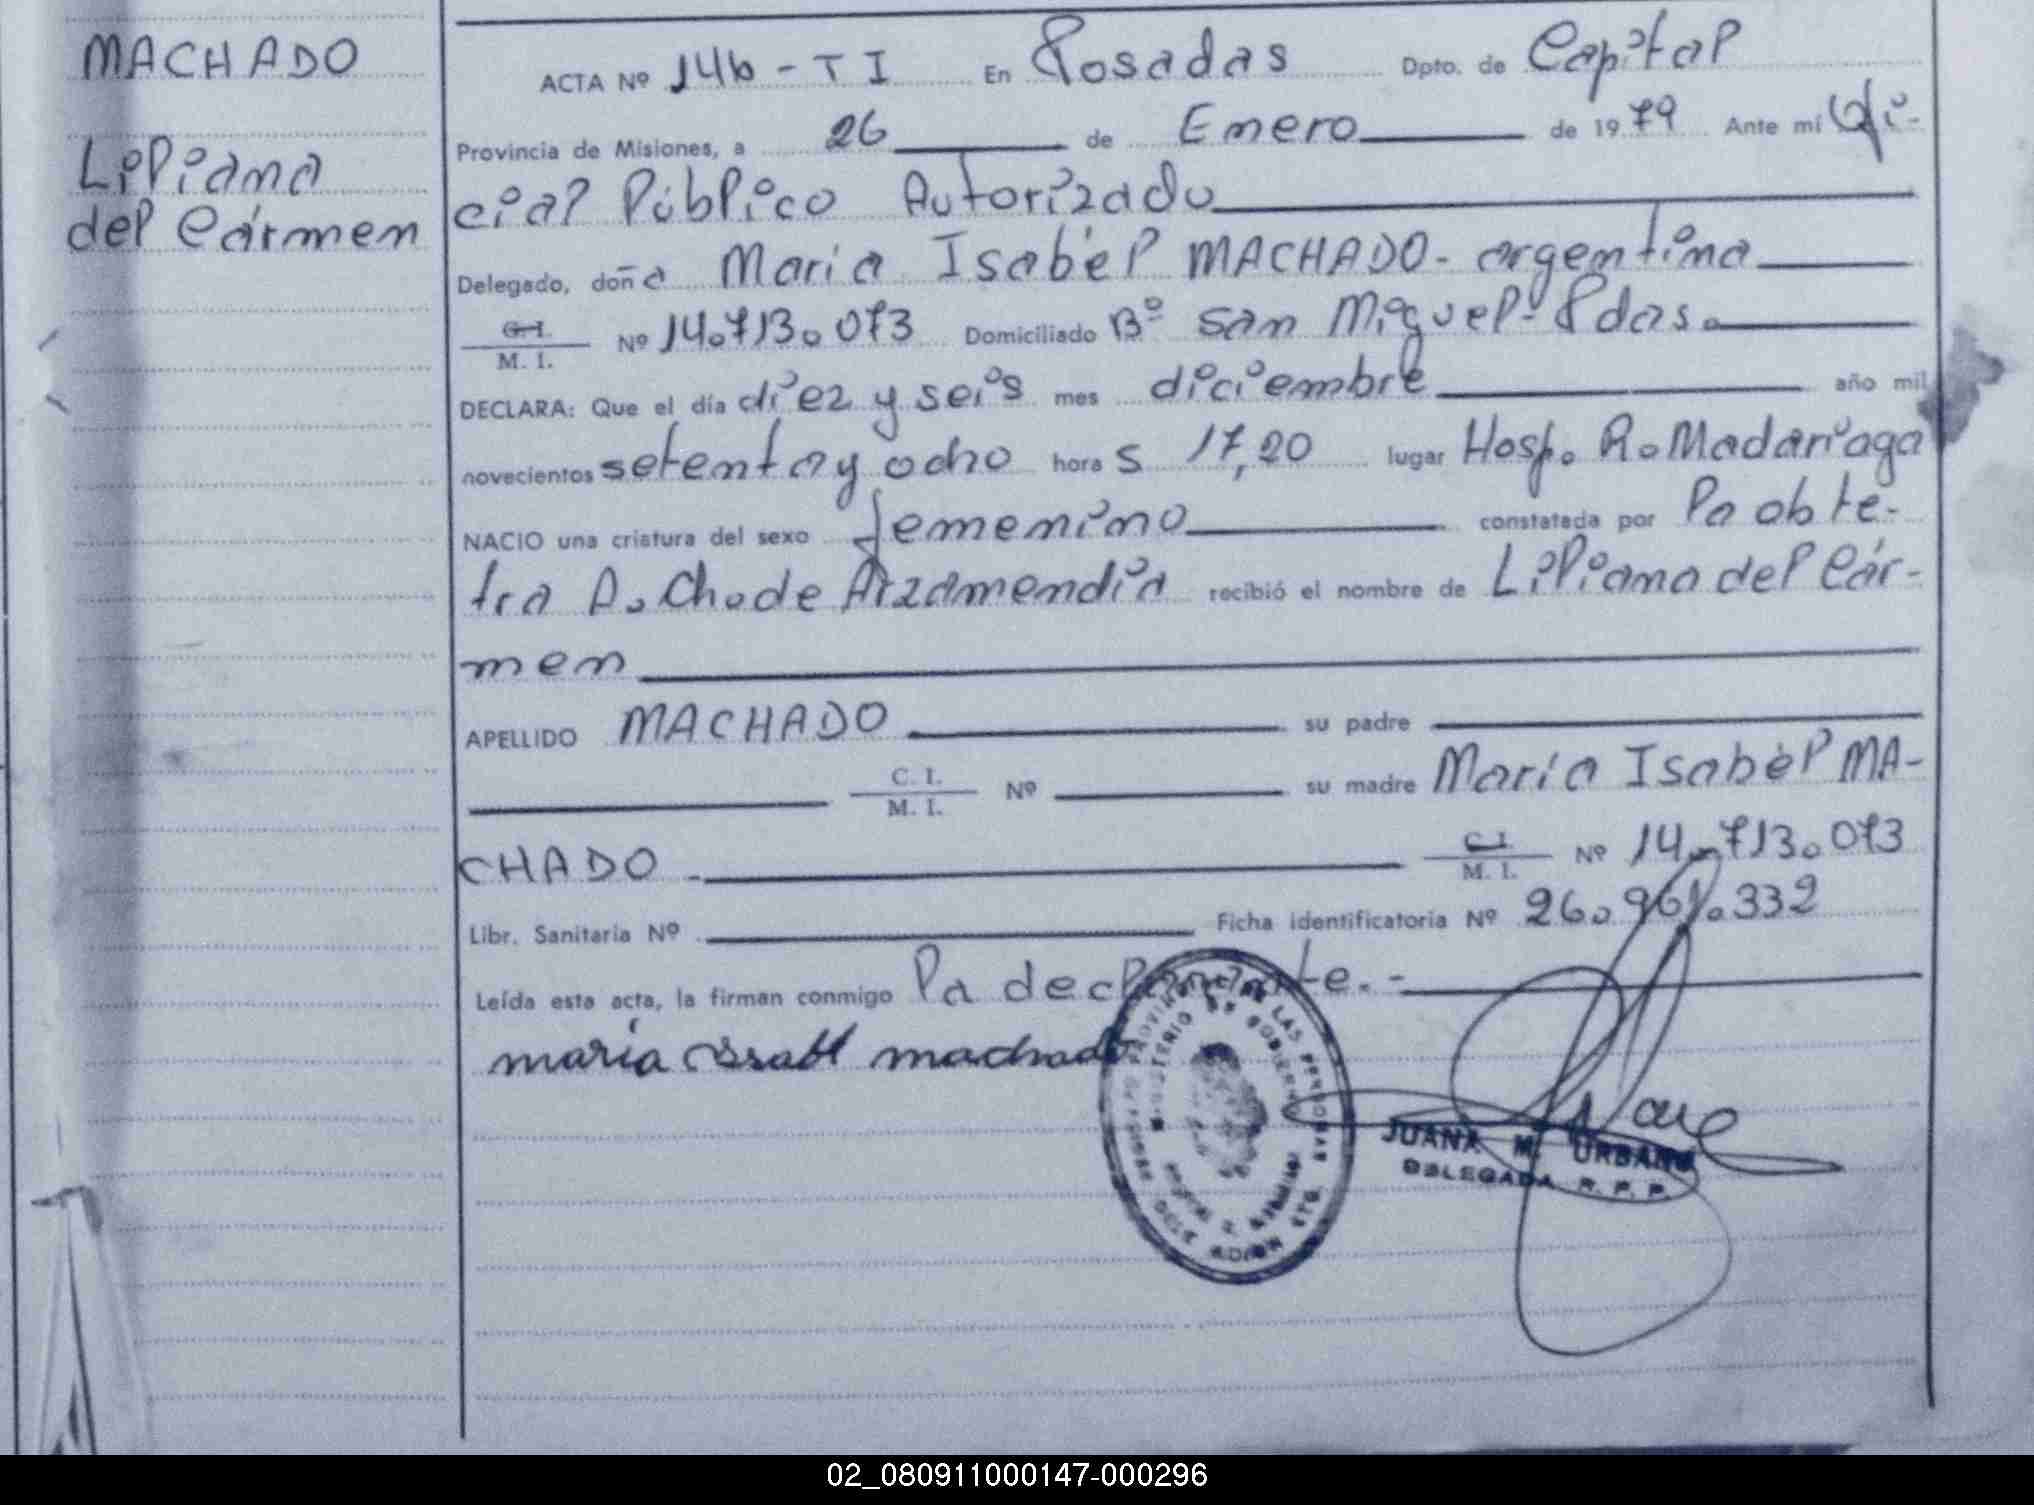 MACHADO
Liliana
del Cármen
ACTA Nº 146 - T I En Posadas Dpto. de Capital
Provincia de Misiones, a 26 de Enero de 1979 Ante mí Ofi-
cial Público Autorizado
Delegado, doña María Isabel MACHADO - argentina
C. I. / M. I. Nº 14.713.073 Domiciliado Bº San Miguel - Pdas.
DECLARA: Que el día diez y seis mes diciembre año mil
novecientos setenta y ocho hora s 17,20 lugar Hosp. R. Madariaga
NACIO una criatura del sexo femenino constatada por la obte-
tra A. Ch. de Arzamendia recibió el nombre de Liliana del Cár-
men
APELLIDO MACHADO su padre
C. I. / M. I. Nº su madre María Isabel MA-
CHADO C. I. / M. I. Nº 14.713.073
Libr. Sanitaria Nº Ficha identificatoria Nº 26.961.332
Leída esta acta, la firman conmigo la declarante. -
maria Isabel machado
JUANA M. URBANO
DELEGADA R. P. P.
02_080911000147-000296